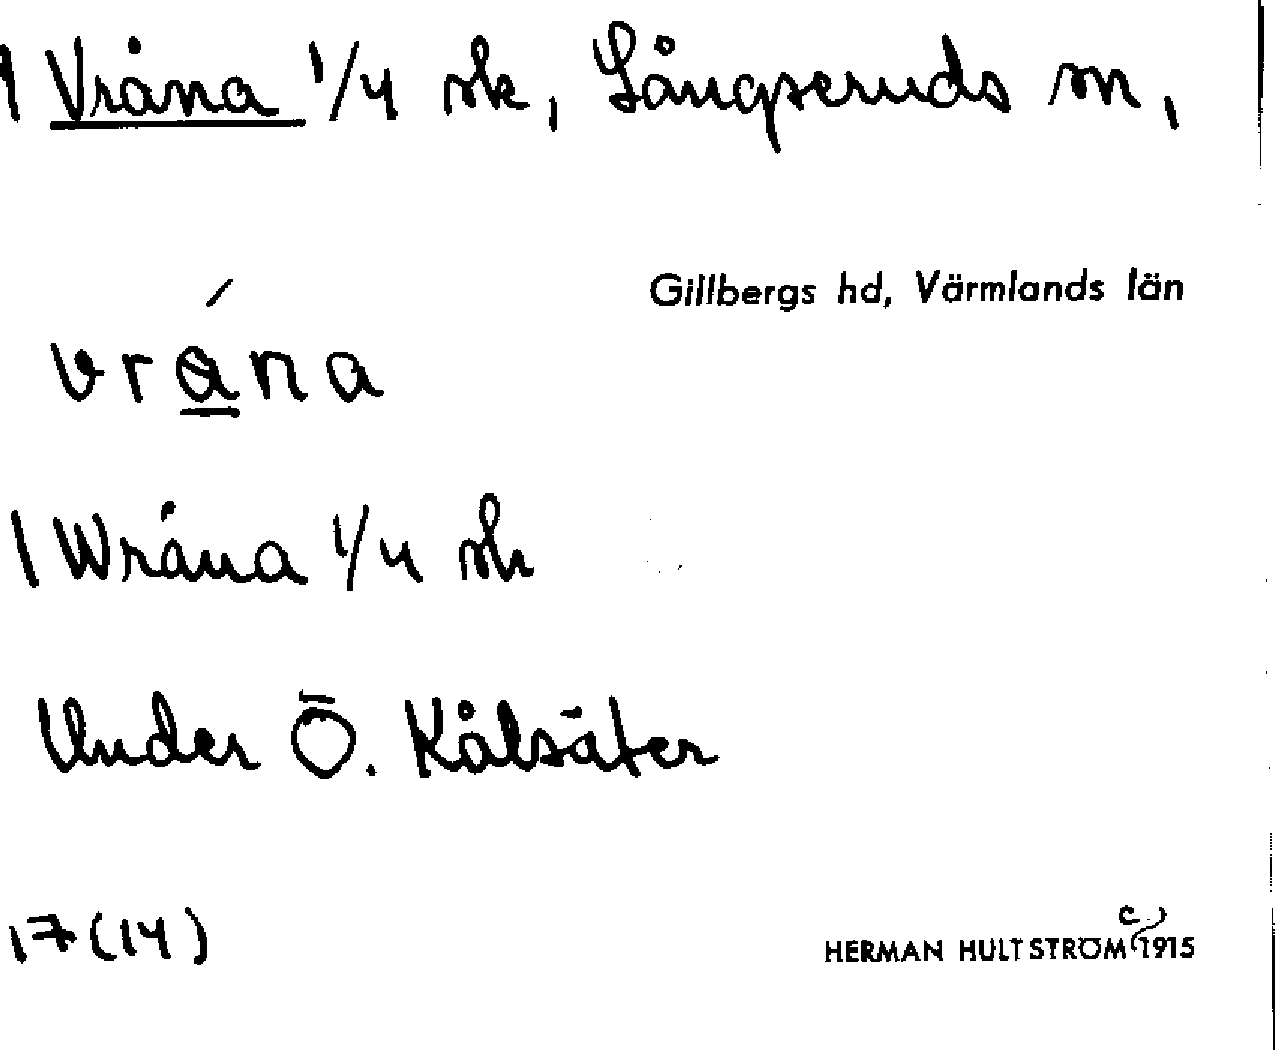 1 Vråna 1/4 sk, Långseruds sn,
Gillbergs hd, Värmlands län
vråna
1 Wråna 1/4 sk
Under Ö. Kålsäter
17(14)
HERMAN HULTSTRÖM c 1915